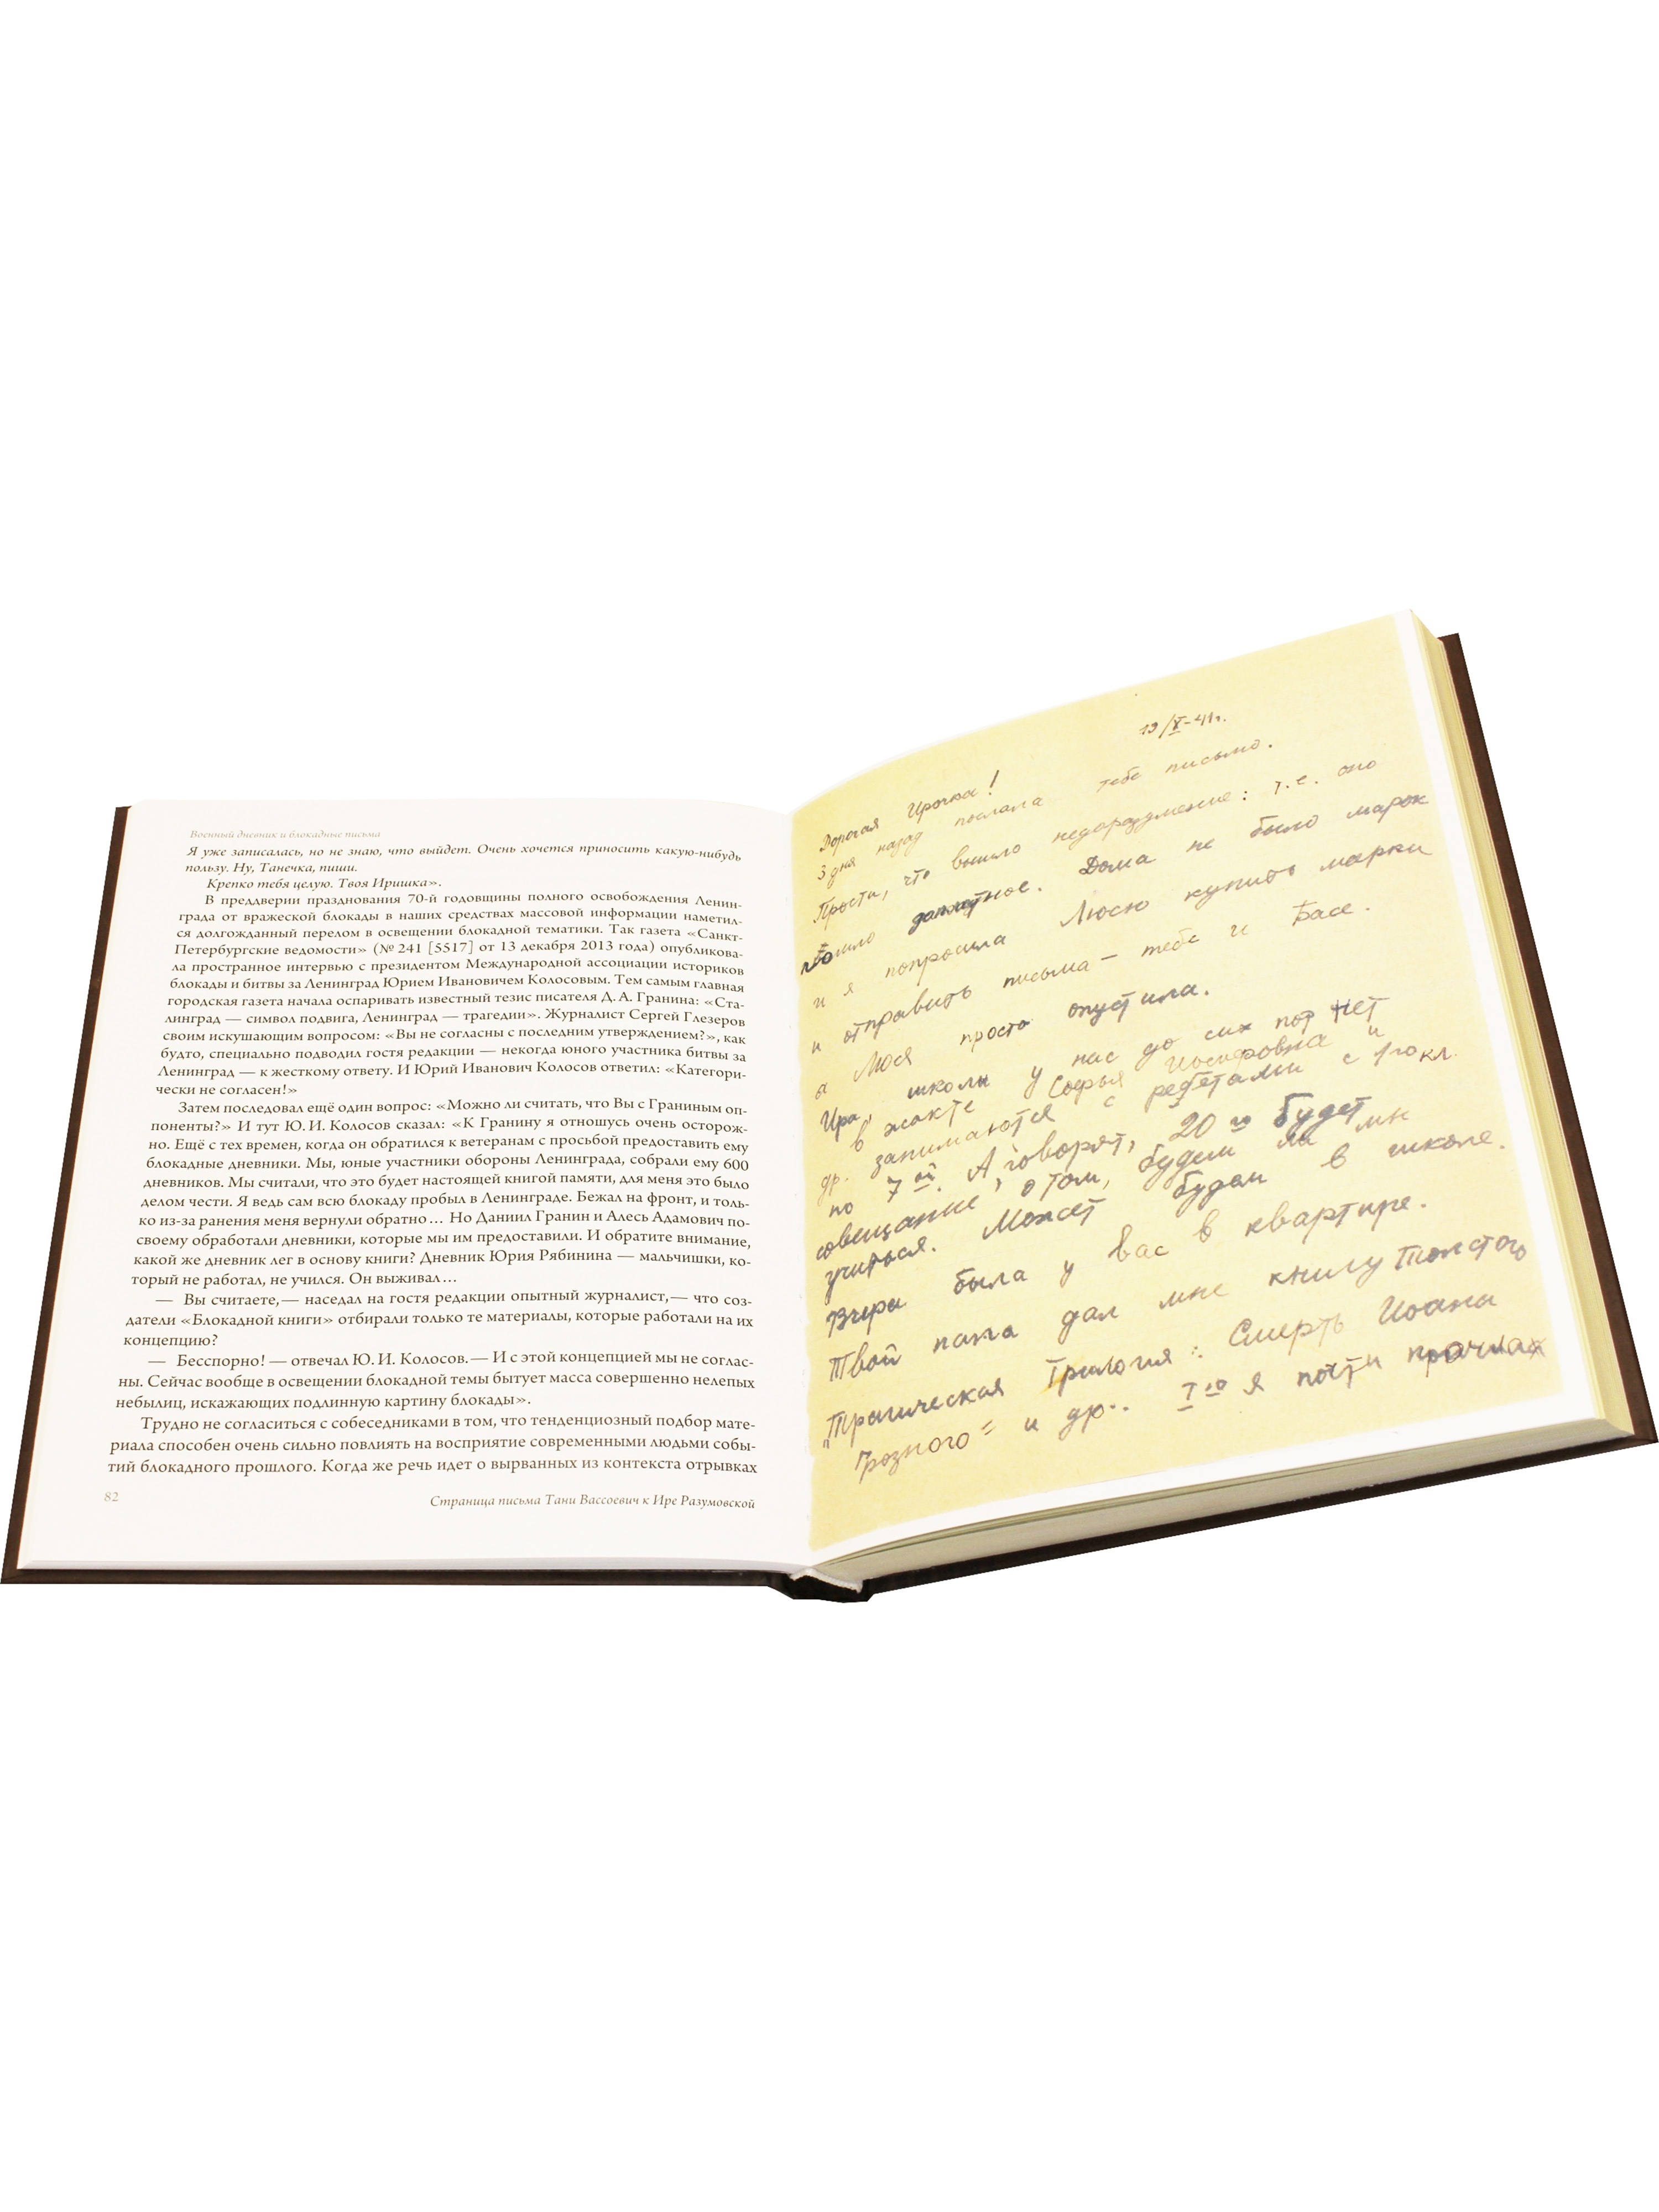 Военный дневник и блокадные письма
Я уже записалась, но не знаю, что выйдет. Очень хочется приносить какую-нибудь
пользу. Ну, Танечка, пиши.
Крепко тебя целую. Твоя Иришка».
В преддверии празднования 70-й годовщины полного освобождения Ленин-
града от вражеской блокады в наших средствах массовой информации наметил-
ся долгожданный перелом в освещении блокадной тематики. Так газета «Санкт-
Петербургские ведомости» (№ 241 [5517] от 13 декабря 2013 года) опубликова-
ла пространное интервью с президентом Международной ассоциации историков
блокады и битвы за Ленинград Юрием Ивановичем Колосовым. Тем самым главная
городская газета начала оспаривать известный тезис писателя Д. А. Гранина: «Ста-
линград — символ подвига, Ленинград — трагедии». Журналист Сергей Глезеров
своим искушающим вопросом: «Вы не согласны с последним утверждением?», как
будто, специально подводил гостя редакции — некогда юного участника битвы за
Ленинград — к жесткому ответу. И Юрий Иванович Колосов ответил: «Категори-
чески не согласен!»
Затем последовал ещё один вопрос: «Можно ли считать, что Вы с Граниным оп-
поненты?» И тут Ю. И. Колосов сказал: «К Гранину я отношусь очень осторож-
но. Ещё с тех времен, когда он обратился к ветеранам с просьбой предоставить ему
блокадные дневники. Мы, юные участники обороны Ленинграда, собрали ему 600
дневников. Мы считали, что это будет настоящей книгой памяти, для меня это было
делом чести. Я ведь сам всю блокаду пробыл в Ленинграде. Бежал на фронт, и толь-
ко из-за ранения меня вернули обратно… Но Даниил Гранин и Алесь Адамович по-
своему обработали дневники, которые мы им предоставили. И обратите внимание,
какой же дневник лег в основу книги? Дневник Юрия Рябинина — мальчишки, ко-
торый не работал, не учился. Он выживал…
— Вы считаете,— наседал на гостя редакции опытный журналист,— что соз-
датели «Блокадной книги» отбирали только те материалы, которые работали на их
концепцию?
— Бесспорно! — отвечал Ю. И. Колосов.— И с этой концепцией мы не соглас-
ны. Сейчас вообще в освещении блокадной темы бытует масса совершенно нелепых
небылиц, искажающих подлинную картину блокады».
Трудно не согласиться с собеседниками в том, что тенденциозный подбор мате-
риала способен очень сильно повлиять на восприятие современными людьми собы-
тий блокадного прошлого. Когда же речь идет о вырванных из контекста отрывках
82
Страница письма Тани Вассоевич к Ире Разумовской
19/X-41г.
Дорогая Ирочка!
3 дня назад послала тебе письмо.
Прости, что вышло недоразумение: т.е. оно
доплатное. Дома не было марок
и я попросила Люсю купить марки
и отправить письма — тебе и Басе.
а Люся просто опустила.
Ира, школы у нас до сих пор нет
в жакте Софья Иосифовна и
др. занимаются с ребетами с 1го кл.
по 7ой. А говорят, 20го будет
совещание, о том, будем ли мы
учиться. Может будем в школе.
Вчера была у вас в квартире.
Твой папа дал мне книгу Толстого
"Трагическая трилогия: Смерть Иоана
Грозного" и др.. Iю я почти прочла